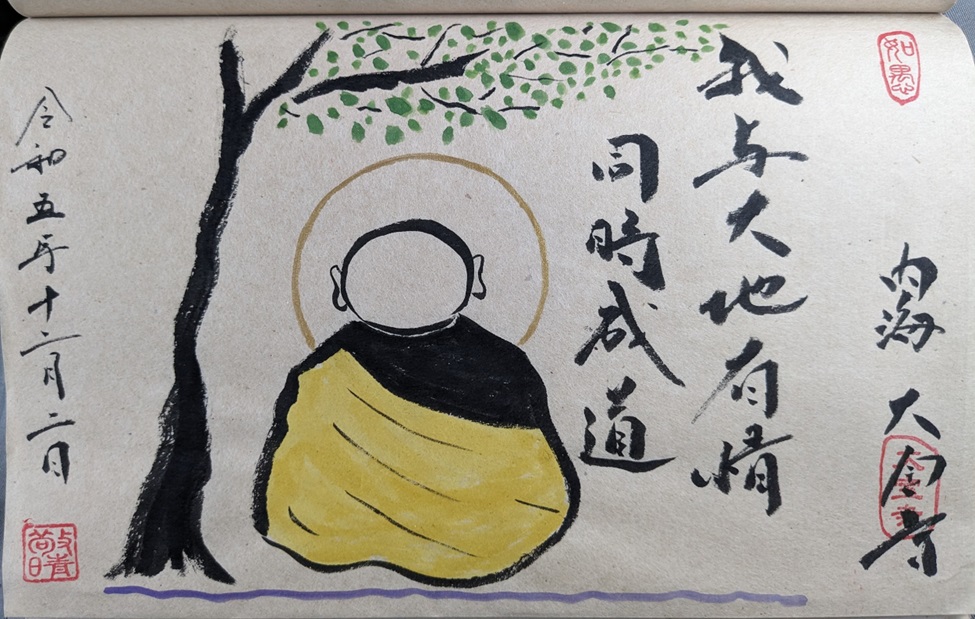 如愚
内海 大宝寺
我与大地有情
同時成道
令和五年十二月二日
敬晴